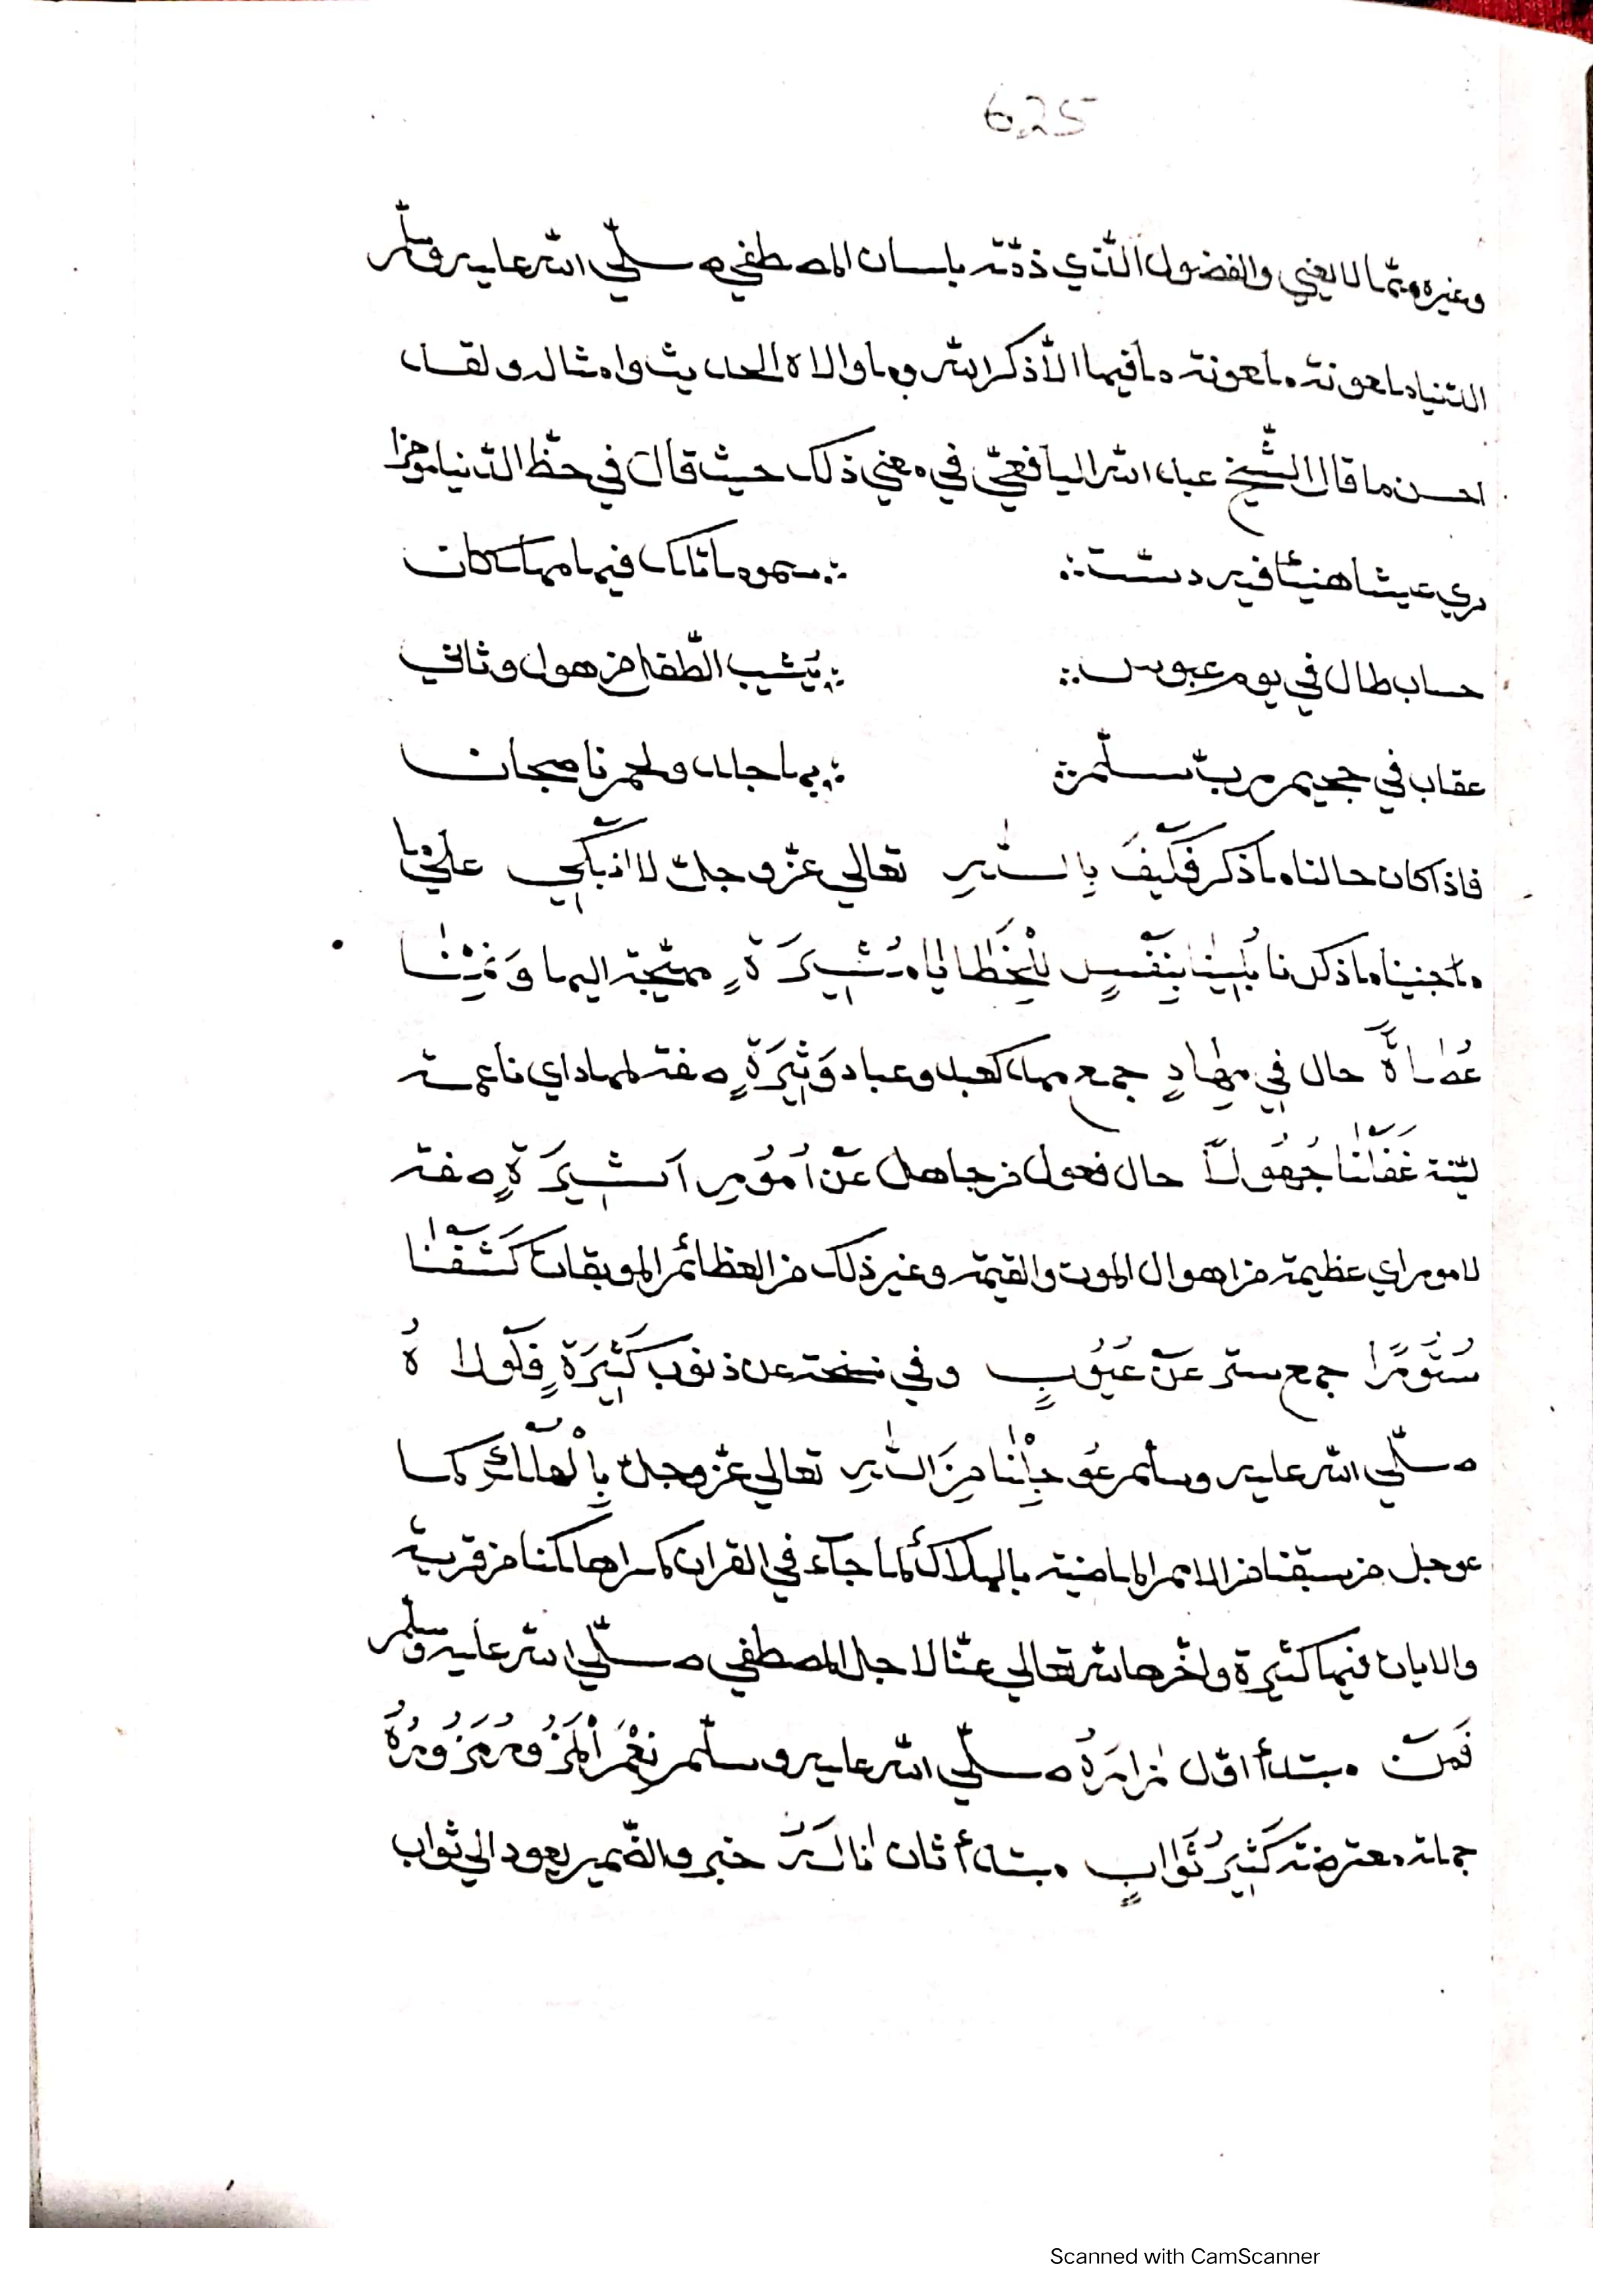 625
وغيره ممّا لا يعني والفضول الّذي ذمّته بلسان المصطفي صلّي الله عليه وسلّم
الدّنيا ملعونة ملعونة ما فيها الّا ذكر الله وما والاه الحديث وامثاله ولقد
احسن ما قال الشّيخ عبد الله اليافعيّ في معني ذلك حيث قال في حظّ الدّنيا موخرا
عيشا هنيئا فيه دست ∴ سموم ما تاك فيها مهلكات
حساب طال في يوم عبوس ∴ يُشيب الطّفل من هول وثاني
عقاب في جحيم ربّ سلّم ∴ بها جلد ولحم ناضجات
فاذا كان حالنا ما ذكر فَكَيْفَ بِاللّٰهِ تعالي عزّ وجلّ لا نَبْكِي عَلَيْ مَا
ما جنينا ما ذكرنا بُلِيْنَا بِنَفْسٍ لِلْخَطَايَا مُشِيرَةٍ متّجهة اليها وَنِمْنَا
عُصَاةً حال فِي مِهَادٍ جمع مهد كعبد وعباد وَثِيرَةٍ صفة لمهاد اي ناعمة
ليّنة غَفَلْنَا جُهُولًا حال فعول من جاهل عَنْ اُمُوْرٍ صفة
لامور اي عظيمة من اهوال الموت والقيمة وغير ذلك من العظائم الموبقات كَشَفْنَا
سُتُوْرًا جمع ستر عَنْ عُيُوْبٍ وفي نسخة عن ذنوب كَثِيْرَةٍ فَلَوْلَا هُ
صلّي الله عليه وسلّم عُوْجِلْنَا مِنَ اللّٰهِ تعالي عزّ وجلّ بِالْهَلَاكِ كما
عوجل من سبقنا من الامم الماضية بالهلاك كما جآء في القران كم اهلكنا من قرية
والايات فيها كثيرة واخّرها الله تعالي عنّا لاجل المصطفي صلّي الله عليه وسلّم
فَمَنْ مبتدأ اوّل زَارَهُ صلّي الله عليه وسلّم نِعْمَ الْمَزُوْرُ مَزُوْرُهُ
جملة معترضة كَثِيْرُ ثَوَابٍ مبتدأ ثان خبر والضّمير يعود الي ثواب
Scanned with CamScanner